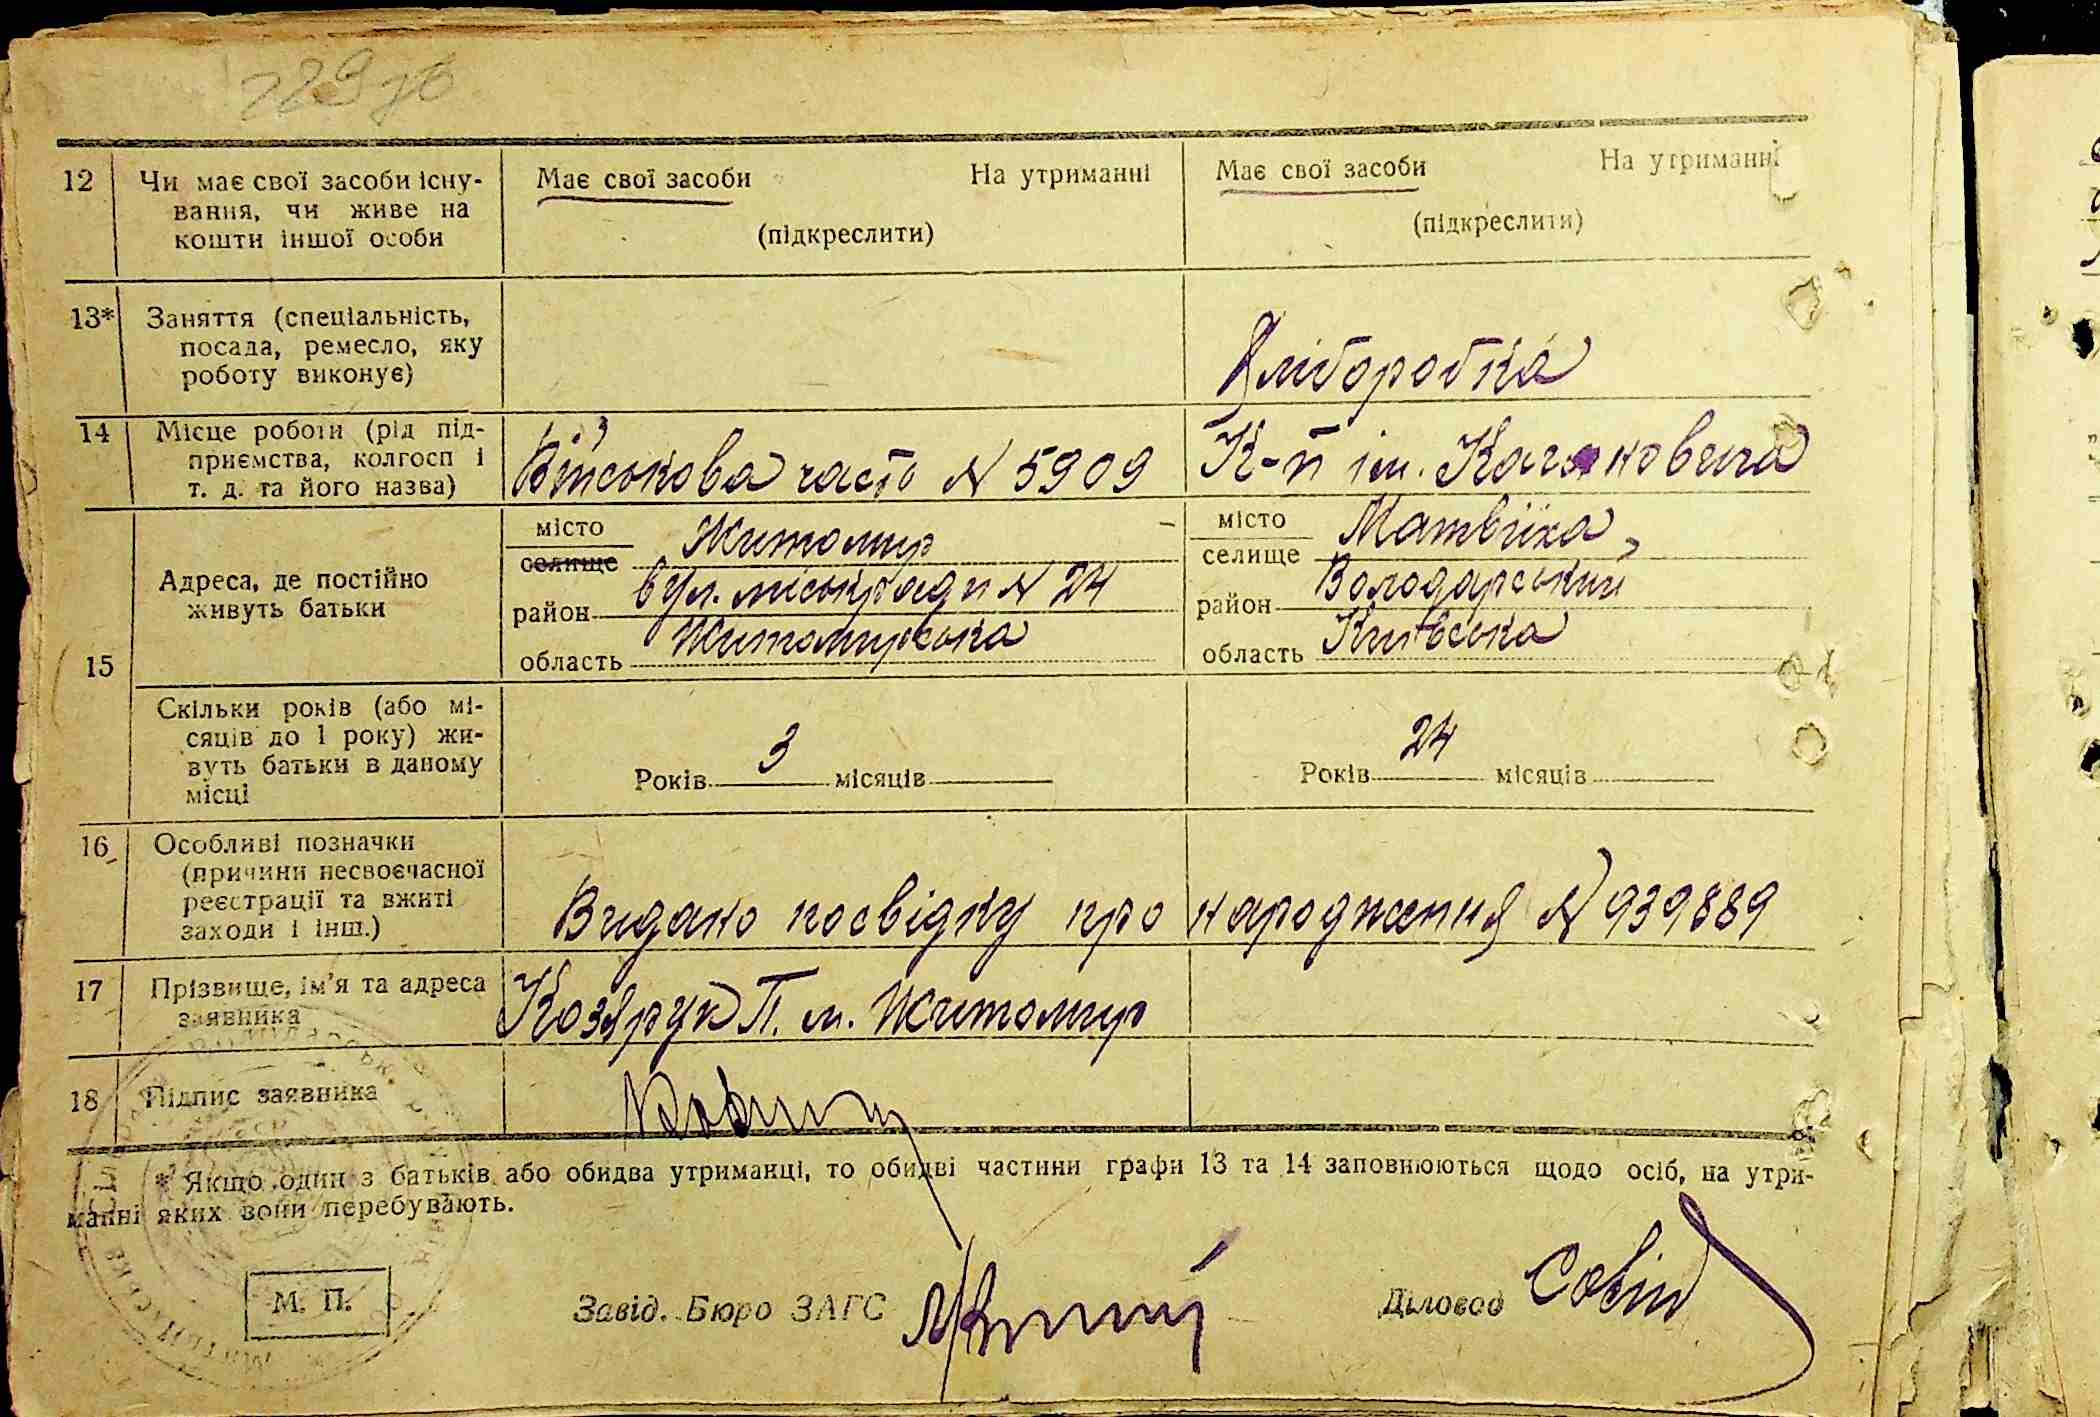 229
12 Чи має свої засоби існу-
вання, чи живе на
кошти іншої особи
Має свої засоби На утриманні
(підкреслити)
Має свої засоби На утриманні
(підкреслити)
13* Заняття (спеціальність,
посада, ремесло, яку
роботу виконує)
Хліборобка
14 Місце роботи (рід під-
приємства, колгосп і
т. д. та його назва)
Військова часть N 5909
К-п ім. Кагановича
15
Адреса, де постійно
живуть батьки
місто Житомир
селище
район вул. міськради N 24
область Житомирська
місто Матвіїха,
селище
район Володарський
область Київська
Скільки років (або мі-
сяців до 1 року) жи-
вуть батьки в даному
місці
Років 3 місяців
Років 24 місяців
16 Особливі позначки
(причини несвоєчасної
реєстрації та вжиті
заходи і інш.)
Видано посвідку про народження N 939889
17 Прізвище, ім'я та адреса
заявника
Козярук П. м. Житомир
18 Підпис заявника
* Якщо один з батьків або обидва утриманці, то обидві частини графи 13 та 14 заповнюються щодо осіб, на утри-
манні яких вони перебувають.
М. П.
Завід. Бюро ЗАГС
Діловод